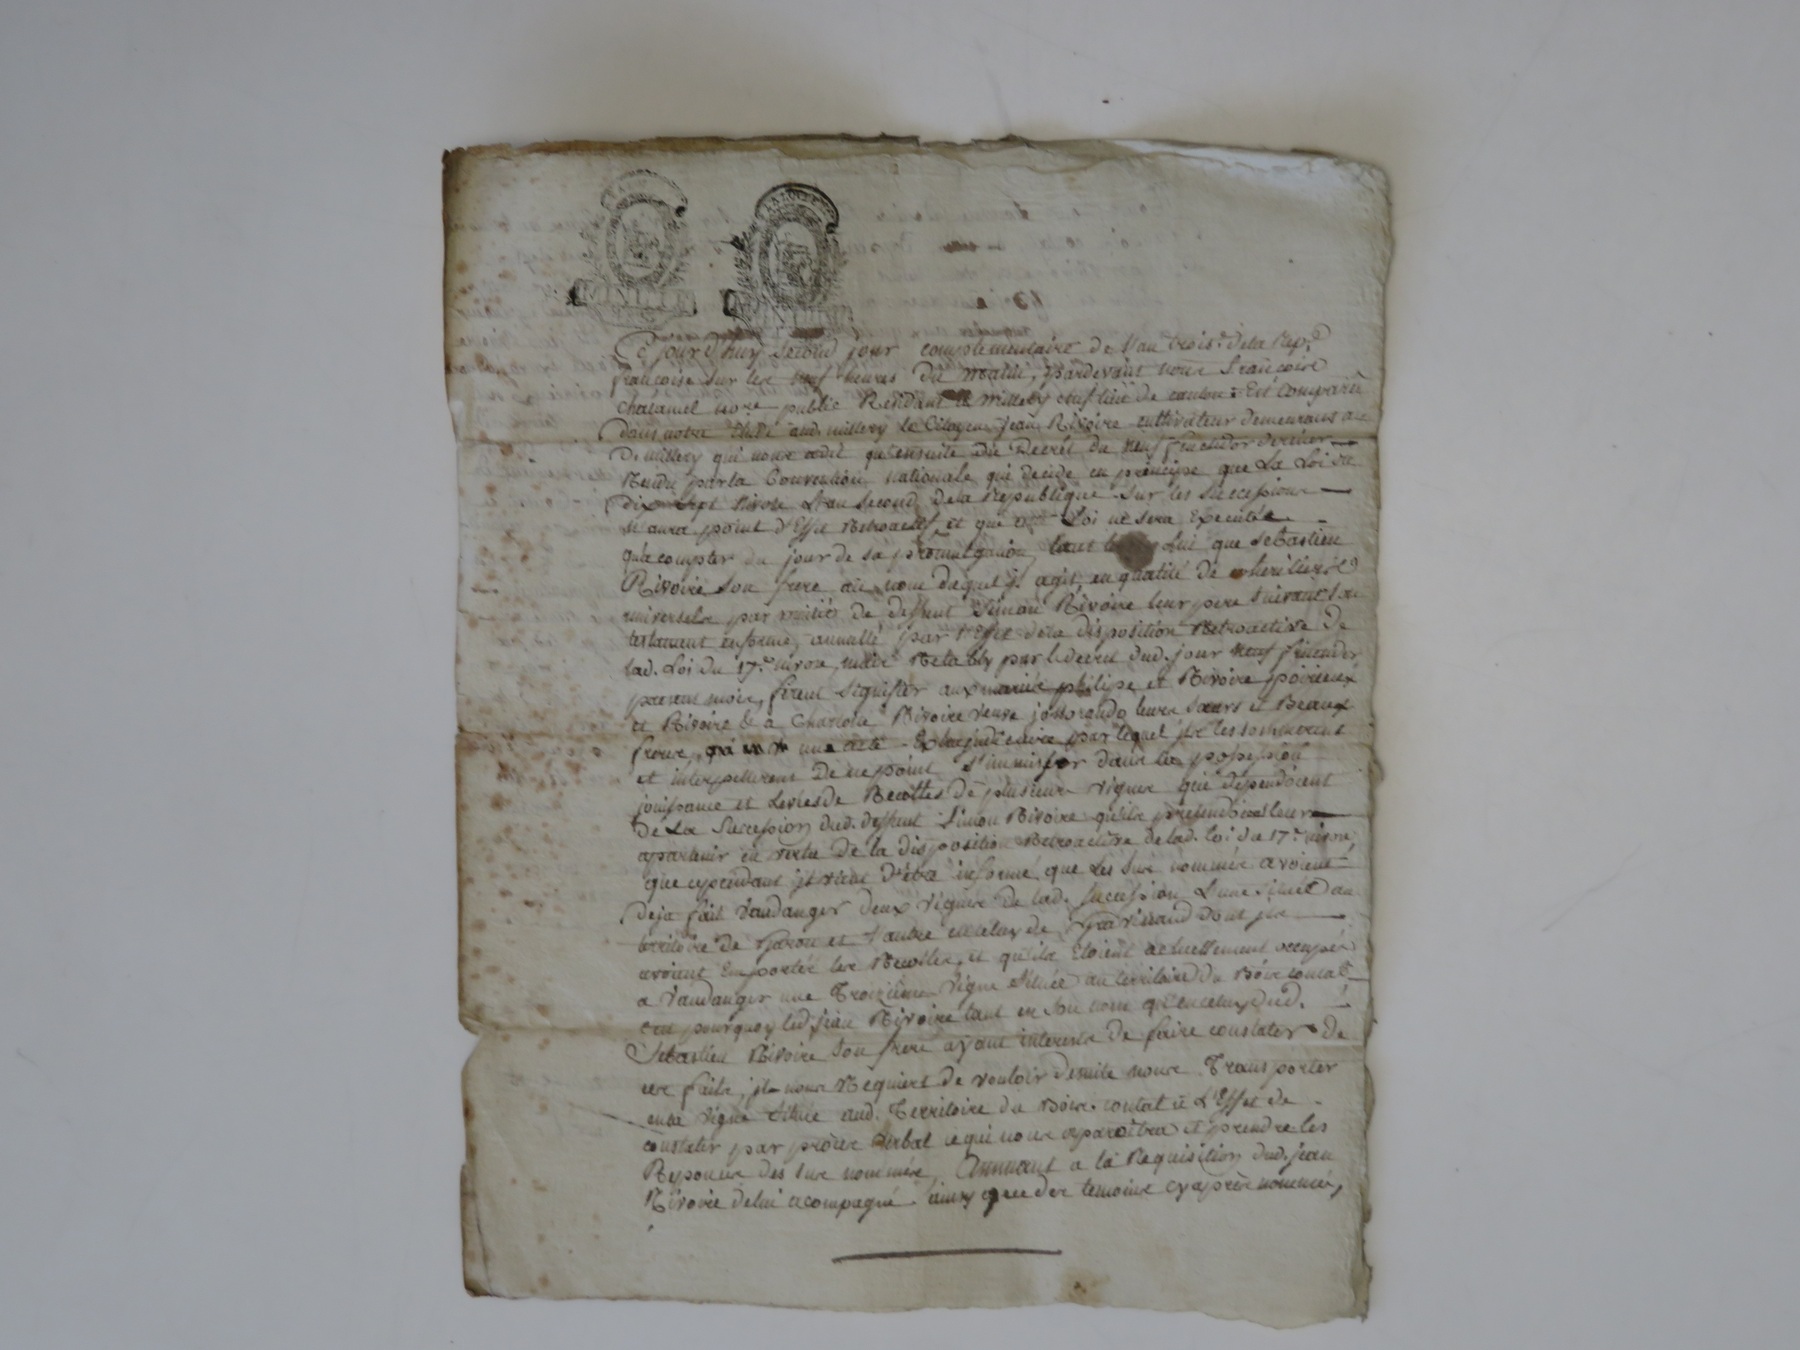 Ce jourd'huy second jour complementaire de l'an trois.e de la Rep.e
françoise sur les neuf heures du matin, pardevant nous François
Chatanel no.re public Residant a Millery chef lieu de canton Est comparu
dans notre Etude aud. millery le Citoyen Jean Rivoire cultivateur demeurant au.
D. millery qui nous a dit qu'ensuite du Decret du neuf fructidor dernier
Rendu par la Convention nationale qui decide en principe que La Loi du
dix sept nivose L'an second de la Republique sur les successions
n'aura point d'Effet Retroactif, et que cette Loi ne sera Executée
qu'a compter du jour de sa promulgation, tant lui que Sebastien
Rivoire son frere au nom duquel jl agit en qualité de heritiers
universels par moitié de deffunt Simon Rivoire leur pere suivant son
testament en forme, annullé par l'Effet de la disposition Retroactive de
lad. Loi du 17.e nivose, mais Retably par le decret dud. jour neuf fructidor
present mois, firent signifier aux mariés philipe et Rivoire poirieux
et Rivoire & a Charlote Rivoire veuve jossorando leurs sœurs et Beaux
freres, un acte Extrajudiciaire par lequel jls les sommerent
et interpellerent De ne point s'immiscer dans la possession
jouissance et Levées de Recoltes de plusieurs vignes qui dependoient
De La Succession dud. deffunt Simon Rivoire qu'ils pretendoient leur
apartenir en vertu de la disposition Retroactive de lad. loi du 17.e nivose,
que cependant jl vient d'etre informé que Les sus nommés avoient
deja fait vandanger deux vignes de lad. succession L'une située au
territoire de Garon et l'autre en celuy de Gravinand dont jls
avoient Emportés les Recoltes, et qu'ils Etoient actuellement occupés
a vandanger une Troizieme vigne située au territoire du Bois contat
c'est pourquoy led. jean Rivoire tant en son nom qu'en celuy dud.
Sebastien Rivoire son frere ayant interets de faire constater de
ces faits, jl nous Requiert de vouloir de suite nous Transporter
en la vigne située aud. Territoire du Bois contat a L'Effet de
constater par procès verbal ce qui nous aparoitra et prendre les
Reponses des sus nommés, Annuant a la Requisition dud. jean
Rivoire de lui acompagné ainsy que des temoins cy après nommés,